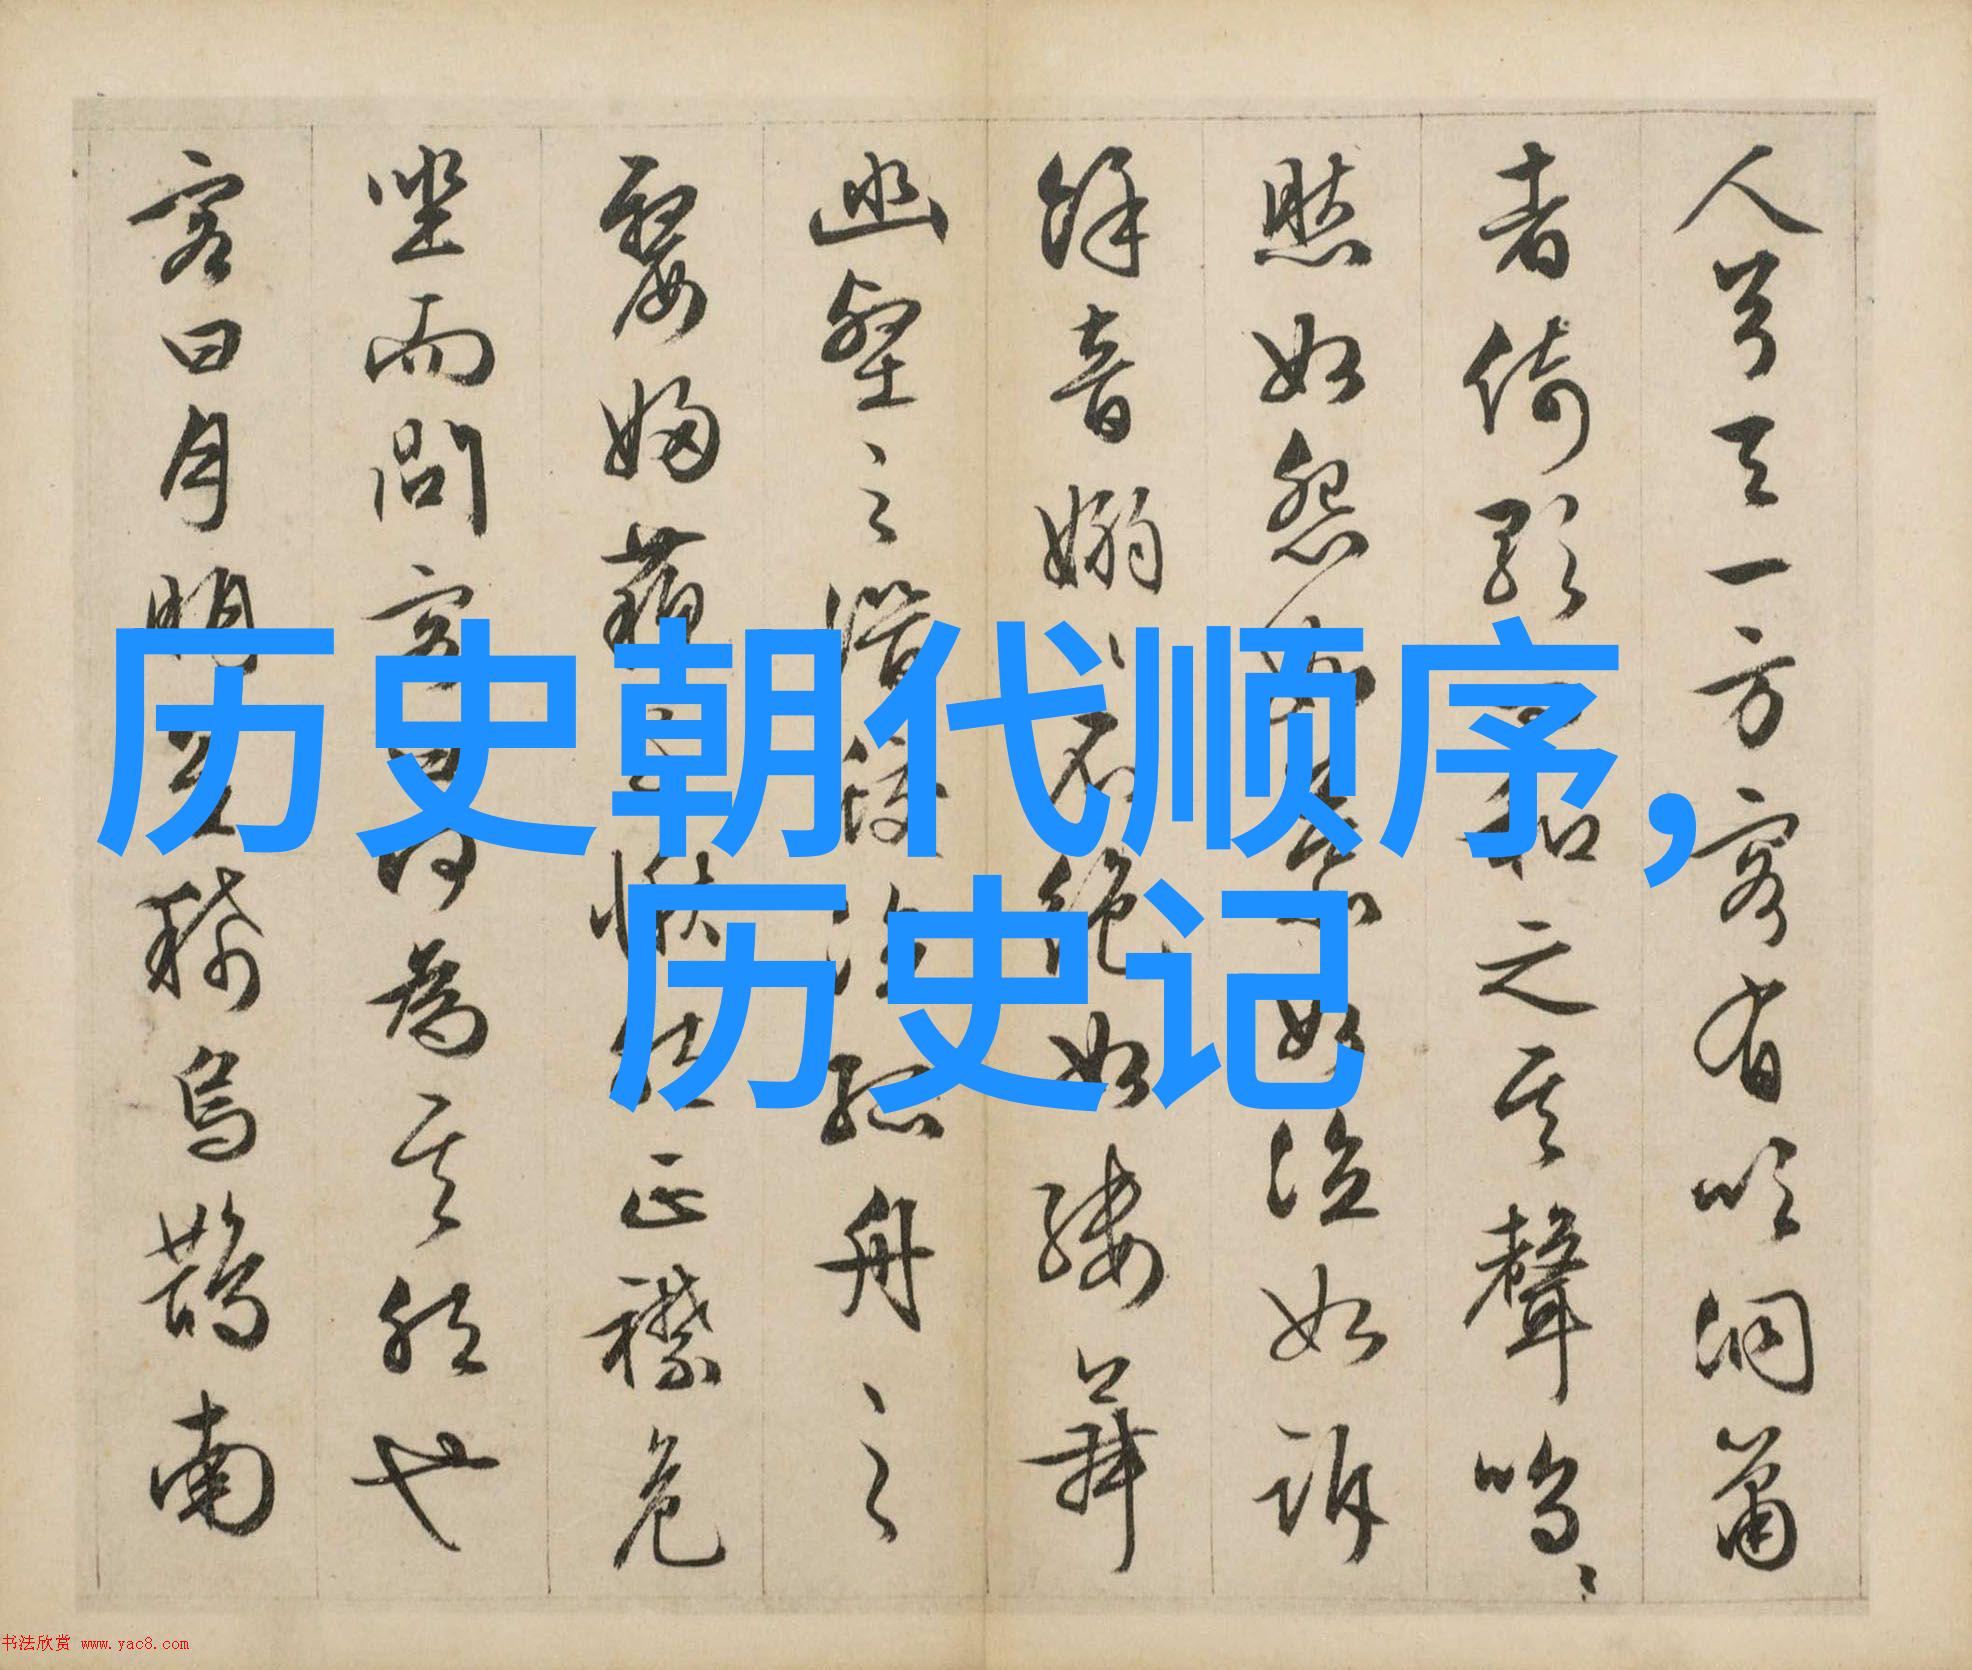 历史朝代顺序，
历史记
人兮天一方客有吹洞簫
者倚歌而和之其聲嗚〻
然如怨如慕如泣如訴
餘音嫋〻不絕如縷舞
幽壑之潛蛟泣孤舟之
嫠婦蘇子愀然正襟危
坐而問客曰何為其然也
客曰月明星稀烏鵲南
书法欣赏 www.yac8.com